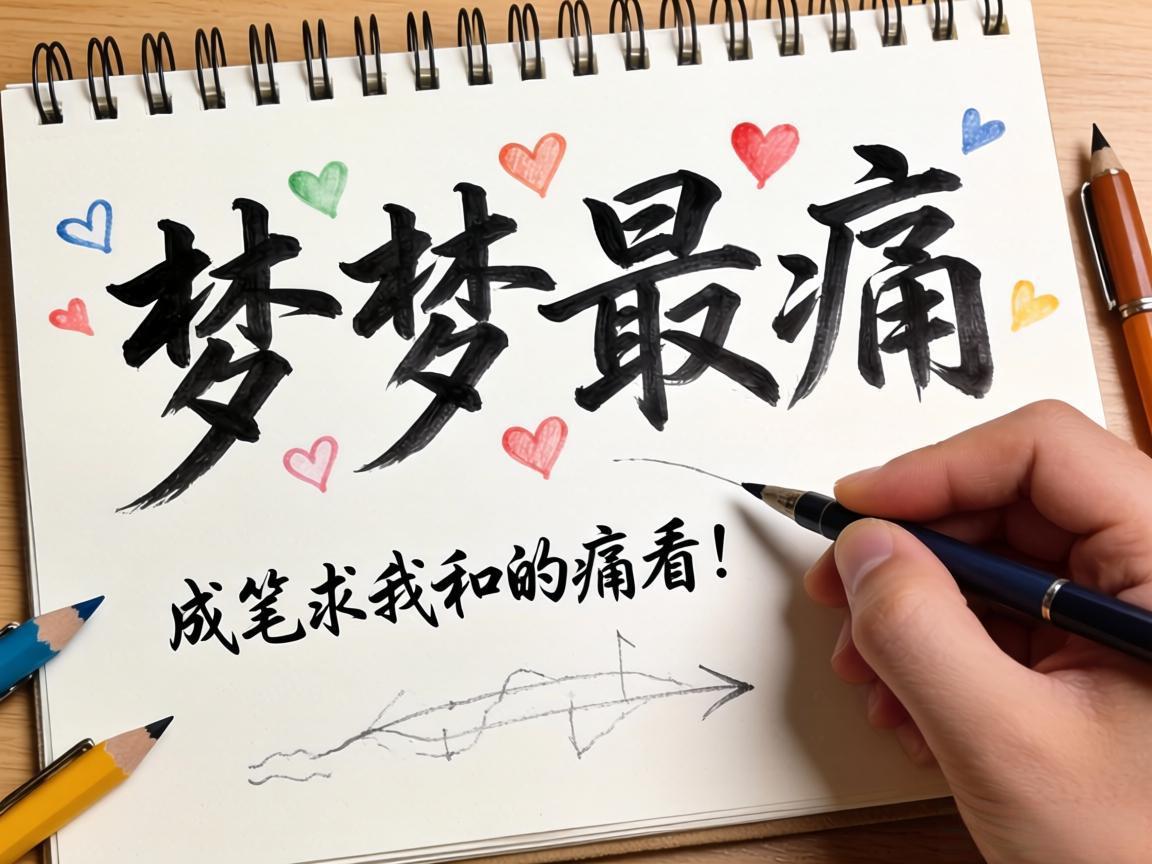 梦梦最痛
成笔求我和的痛看！